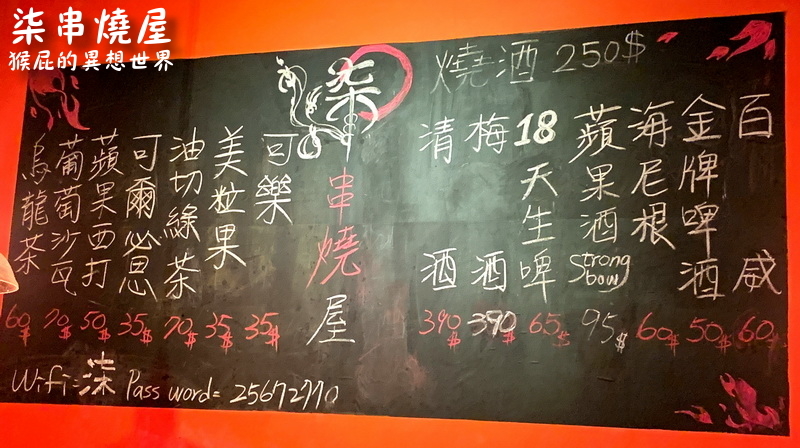 柒串燒屋
猴屁的異想世界
燒酒 250$
百威 60$
金牌啤酒 50$
海尼根 60$
蘋果酒 Strong bow 95$
18天生啤 65$
梅酒 390$
清酒 390$
柒串燒屋
可樂 35$
美粒果 35$
油切綠茶 70$
可爾必思 35$
蘋果西打 50$
葡萄沙瓦 70$
烏龍茶 60$
Wifi=柒 Pass word= 25672770